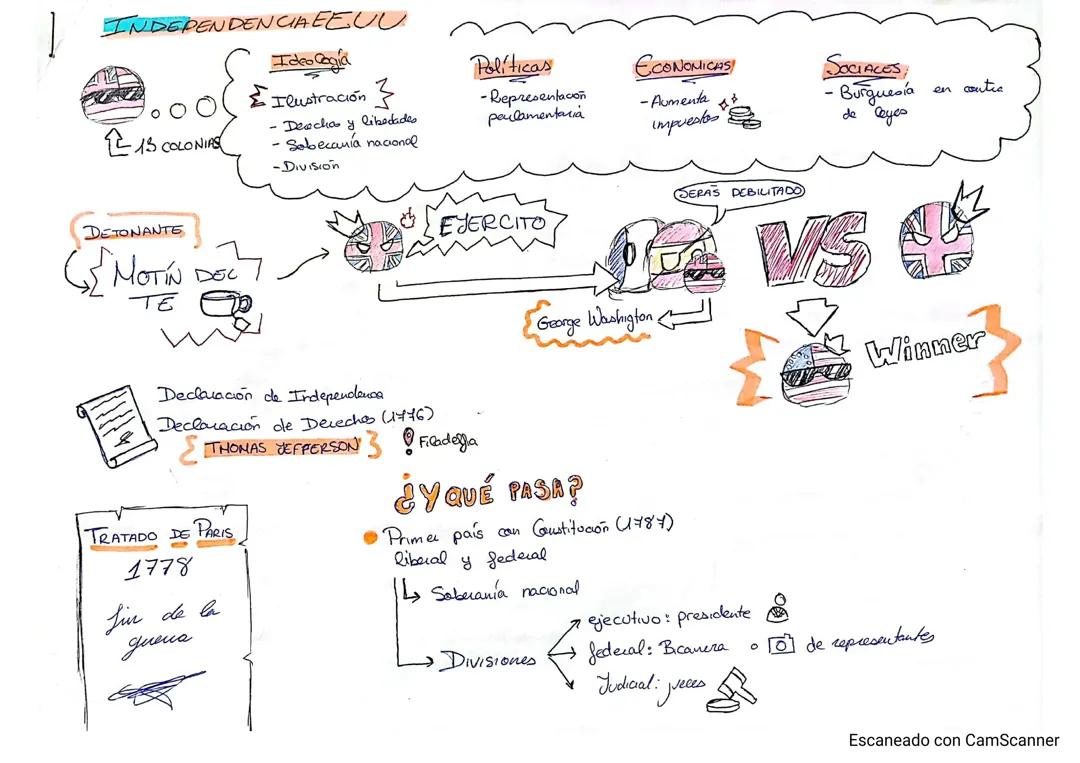 INDEPENDENCIA EEUU
Ideología
Ilustración
- Derechos y libertades
- Soberanía nacional
- División
Políticas
- Representación
parlamentaria
ECONOMICAS
- Aumenta
impuestos
SOCIALES:
- Burguesía en contra
de leyes
13 COLONIAS
DETONANTE
MOTÍN DEL
TE
EJERCITO
SERÁS DEBILITADO
VS
George Washington
Winner
Declaración de Independencia
Declaración de Derechos (1776)
THOMAS JEFFERSON
Filadelfia
TRATADO DE PARIS
1778
fin de la
guerra
¿Y QUÉ PASA?
Primer país con Constitución (1787)
liberal y federal
Soberanía nacional
DIVISIONES
ejecutivo: presidente
federal: Bicamera o de representantes
Judicial: jueces
Escaneado con CamScanner